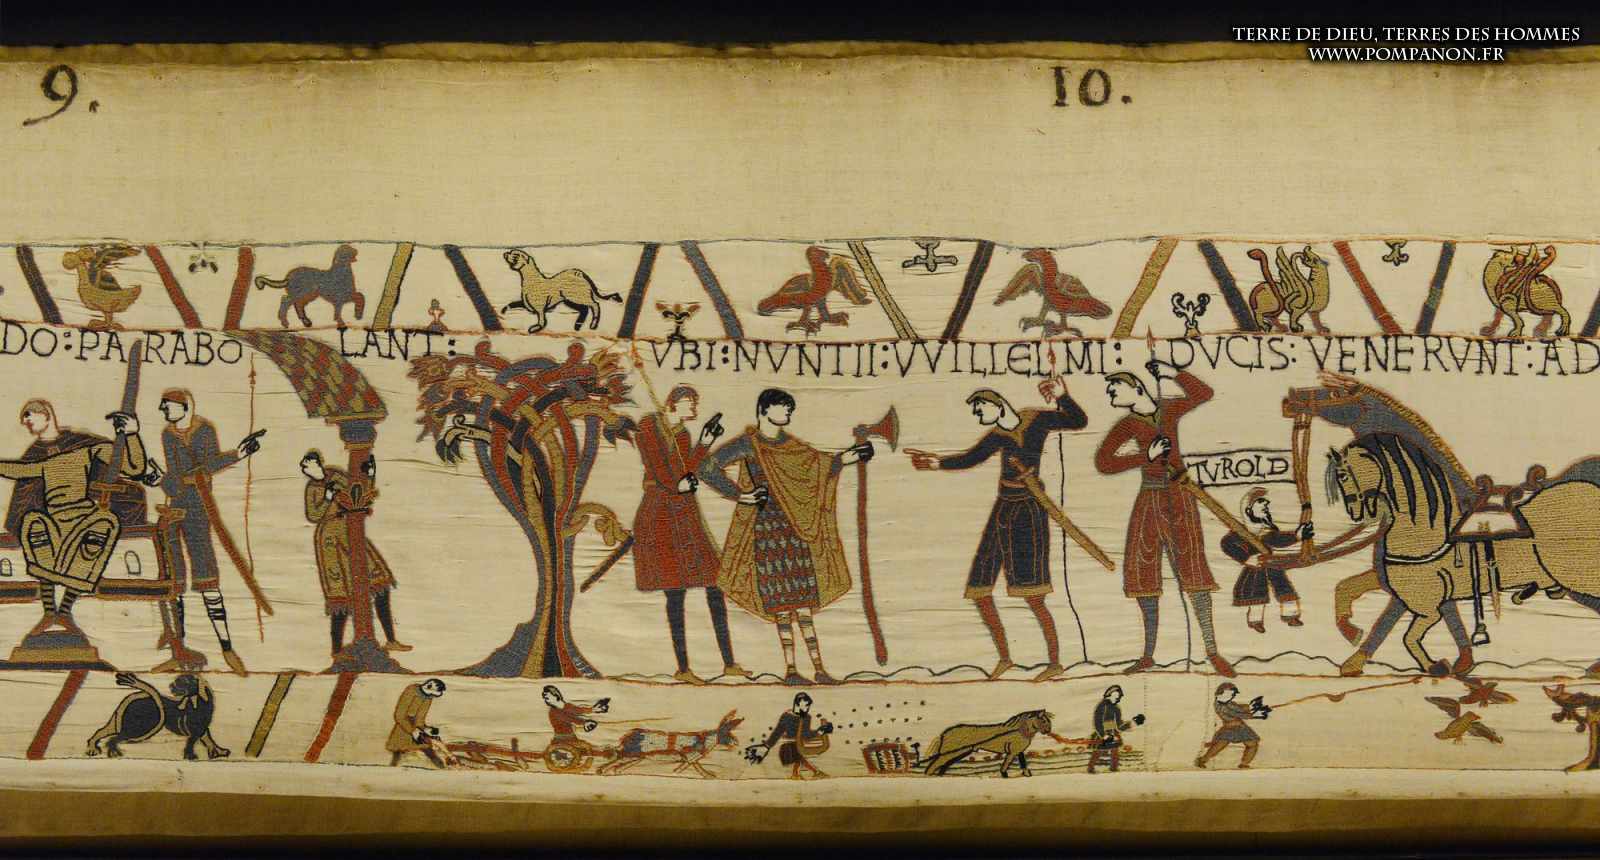 TERRE DE DIEU, TERRES DES HOMMES
WWW.POMPANON.FR
9. 10.
DO : PARABO LANT : VBI : NVNTII : VVILLELMI : DVCIS : VENERVNT : AD
TVROLD